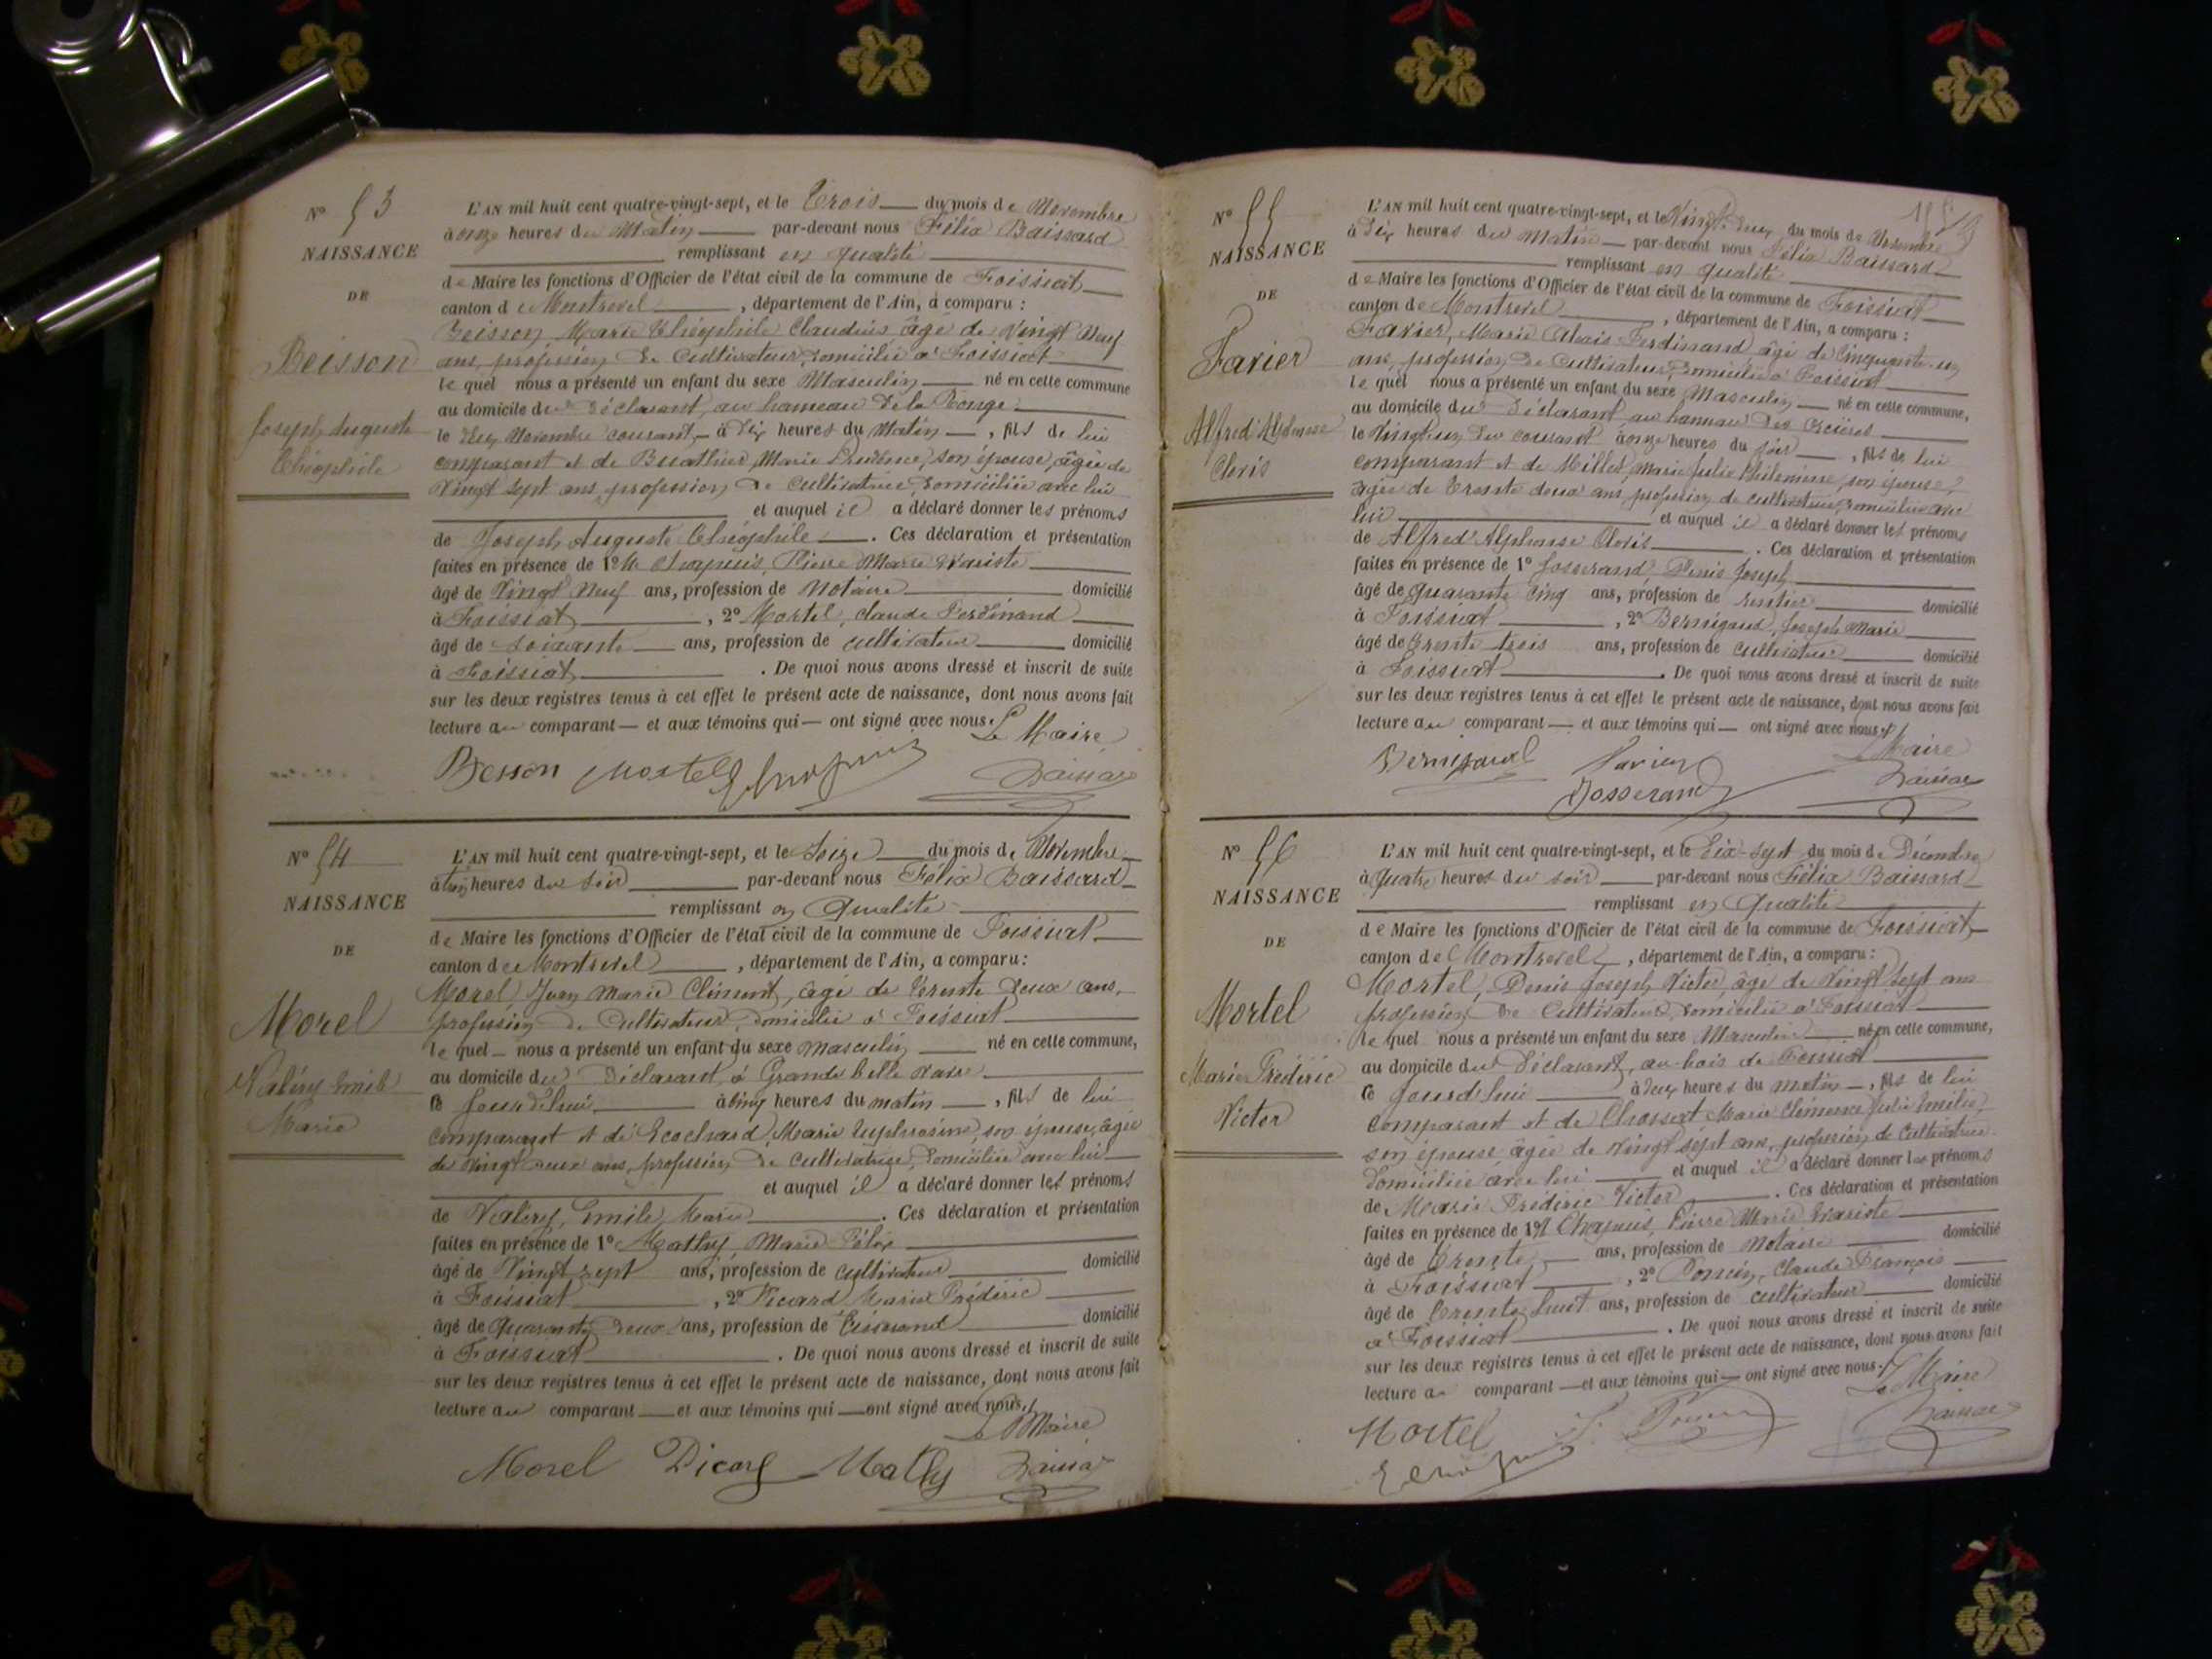 N° 53
NAISSANCE
DE
Beisson
Joseph Auguste
Théophile
L'AN mil huit cent quatre-vingt-sept, et le Trois du mois de Novembre
à onze heures du Matin par-devant nous Félix Baissard
remplissant en qualité
de Maire les fonctions d'Officier de l'état civil de la commune de Foissiat
canton de Montrevel, département de l'Ain, a comparu :
Beisson, Marie Théophile Claudius âgé de Vingt Neuf
ans, profession de Cultivateur, domicilié à Foissiat
lequel nous a présenté un enfant du sexe Masculin né en cette commune
au domicile du déclarant, au hameau de la Ronge
le deux Novembre courant, à dix heures du Matin, fils de lui
comparant et de Buathier, Marie Prudence, son épouse, âgée de
Vingt sept ans, profession de cultivatrice, domiciliée avec lui
et auquel il a déclaré donner les prénoms
de Joseph Auguste Théophile. Ces déclaration et présentation
faites en présence de 1° Mr Chapuis, Pierre Marie Evariste
âgé de Vingt Neuf ans, profession de Notaire domicilié
à Foissiat, 2° Mortel, Claude Ferdinand
âgé de soixante ans, profession de cultivateur domicilié
à Foissiat. De quoi nous avons dressé et inscrit de suite
sur les deux registres tenus à cet effet le présent acte de naissance, dont nous avons fait
lecture au comparant et aux témoins qui ont signé avec nous. Le Maire
Besson Mortel Chapuis Baissard
N° 54
NAISSANCE
DE
Morel
Valéry Emile
Marie
L'AN mil huit cent quatre-vingt-sept, et le Seize du mois de Novembre
à trois heures du soir par-devant nous Félix Baissard
remplissant en Qualité
de Maire les fonctions d'Officier de l'état civil de la commune de Foissiat
canton de Montrevel, département de l'Ain, a comparu :
Morel Jean Marie Clément, âgé de trente deux ans,
profession de Cultivateur, domicilié à Foissiat
lequel nous a présenté un enfant du sexe masculin né en cette commune,
au domicile du Déclarant, à Grande belle
le Jourd'hui à cinq heures du matin, fils de lui
comparant et de Ecochard, Marie Euphrosine, son épouse, âgée
de vingt deux ans, profession de cultivatrice, domiciliée avec lui
et auquel il a déclaré donner les prénoms
de Valéry, Emile, Marie. Ces déclaration et présentation
faites en présence de 1° Mathy, Marie Félix
âgé de Vingt sept ans, profession de cultivateur domicilié
à Foissiat, 2° Picard Marie Frédéric
âgé de Quarante deux ans, profession de Tisserand domicilié
à Foissiat. De quoi nous avons dressé et inscrit de suite
sur les deux registres tenus à cet effet le présent acte de naissance, dont nous avons fait
lecture au comparant et aux témoins qui ont signé avec nous.
Le Maire
Morel Picard Mathy Baissard
N° 55
NAISSANCE
DE
Favier
Alfred Alphonse
Clovis
L'AN mil huit cent quatre-vingt-sept, et le Vingt-deux du mois de Novembre
à Dix heures du matin par-devant nous Félix Baissard
remplissant en qualité
de Maire les fonctions d'Officier de l'état civil de la commune de Foissiat
canton de Montrevel, département de l'Ain, a comparu :
Favier, Marie Alexis Ferdinand, âgé de Cinquante un
ans, profession de Cultivateur, domicilié à Foissiat
lequel nous a présenté un enfant du sexe Masculin né en cette commune,
au domicile du déclarant au hameau des
le Vingt un du courant à onze heures du soir, fils de lui
comparant et de Millet, Marie Julie Philomène, son épouse,
âgée de Trente deux ans, profession de cultivatrice, domiciliée avec
lui et auquel il a déclaré donner les prénoms
de Alfred Alphonse Clovis. Ces déclaration et présentation
faites en présence de 1° Josserand, Denis Joseph
âgé de quarante cinq ans, profession de rentier domicilié
à Foissiat, 2° Bernigaud, Joseph Marie
âgé de trente trois ans, profession de cultivateur domicilié
à Foissiat. De quoi nous avons dressé et inscrit de suite
sur les deux registres tenus à cet effet le présent acte de naissance, dont nous avons fait
lecture au comparant et aux témoins qui ont signé avec nous.
Le Maire
Bernigaud Favier Baissard
Josserand
N° 56
NAISSANCE
DE
Mortel
Marie Frédéric
Victor
L'AN mil huit cent quatre-vingt-sept, et le Dix-sept du mois de Décembre
à Quatre heures du soir par-devant nous Félix Baissard
remplissant en Qualité
de Maire les fonctions d'Officier de l'état civil de la commune de Foissiat
canton de Montrevel, département de l'Ain, a comparu :
Mortel, Denis Joseph Victor, âgé de Vingt sept ans
profession de Cultivateur, domicilié à Foissiat
lequel nous a présenté un enfant du sexe Masculin né en cette commune,
au domicile du Déclarant, au bois de
le Jourd'hui à deux heures du matin, fils de lui
comparant et de Chossat Marie Clémence Julie Emilie,
son épouse âgée de Vingt sept ans, profession de Cultivatrice
domiciliée avec lui et auquel il a déclaré donner les prénoms
de Marie Frédéric Victor. Ces déclaration et présentation
faites en présence de 1° Mr Chapuis, Pierre Marie Evariste
âgé de Trente ans, profession de Notaire domicilié
à Foissiat, 2° Poncin, Claude François
âgé de Trente huit ans, profession de cultivateur domicilié
à Foissiat. De quoi nous avons dressé et inscrit de suite
sur les deux registres tenus à cet effet le présent acte de naissance, dont nous avons fait
lecture au comparant et aux témoins qui ont signé avec nous.
Le Maire
Mortel Baissard
Chapuis